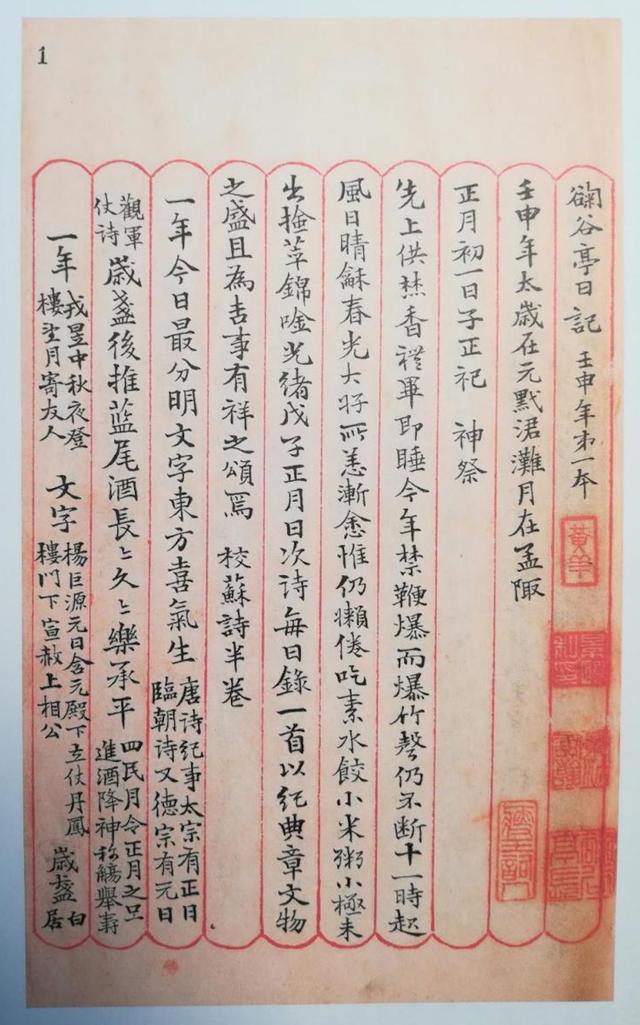 1
谷亭日記 壬申年第一本
壬申年太歲在元默涒灘月在孟陬
正月初一日子正祀 神祭
先上供焚香禮畢即睡今年禁鞭爆而爆竹聲仍不斷十一時起
風日晴龢春光大好所恙漸愈惟仍懶倦吃素水餃小米粥小極未
出撿苹錦唫光緒戊子正月日次詩每日錄一首以紀典章文物
之盛且為吉事有祥之頌焉 校蘇詩半卷
一年今日最分明文字東方喜氣生 唐詩紀事太宗有正日臨朝詩又德宗有元日
觀軍仗詩 歲盞後推藍尾酒長〻久〻樂承平 四民月令正月之旦進酒降神称觴舉壽
一年 戎昱中秋夜澄樓望月寄友人 文字 楊巨源元日含元殿下立仗丹鳳樓門下宣赦上相公 歲盞 白居